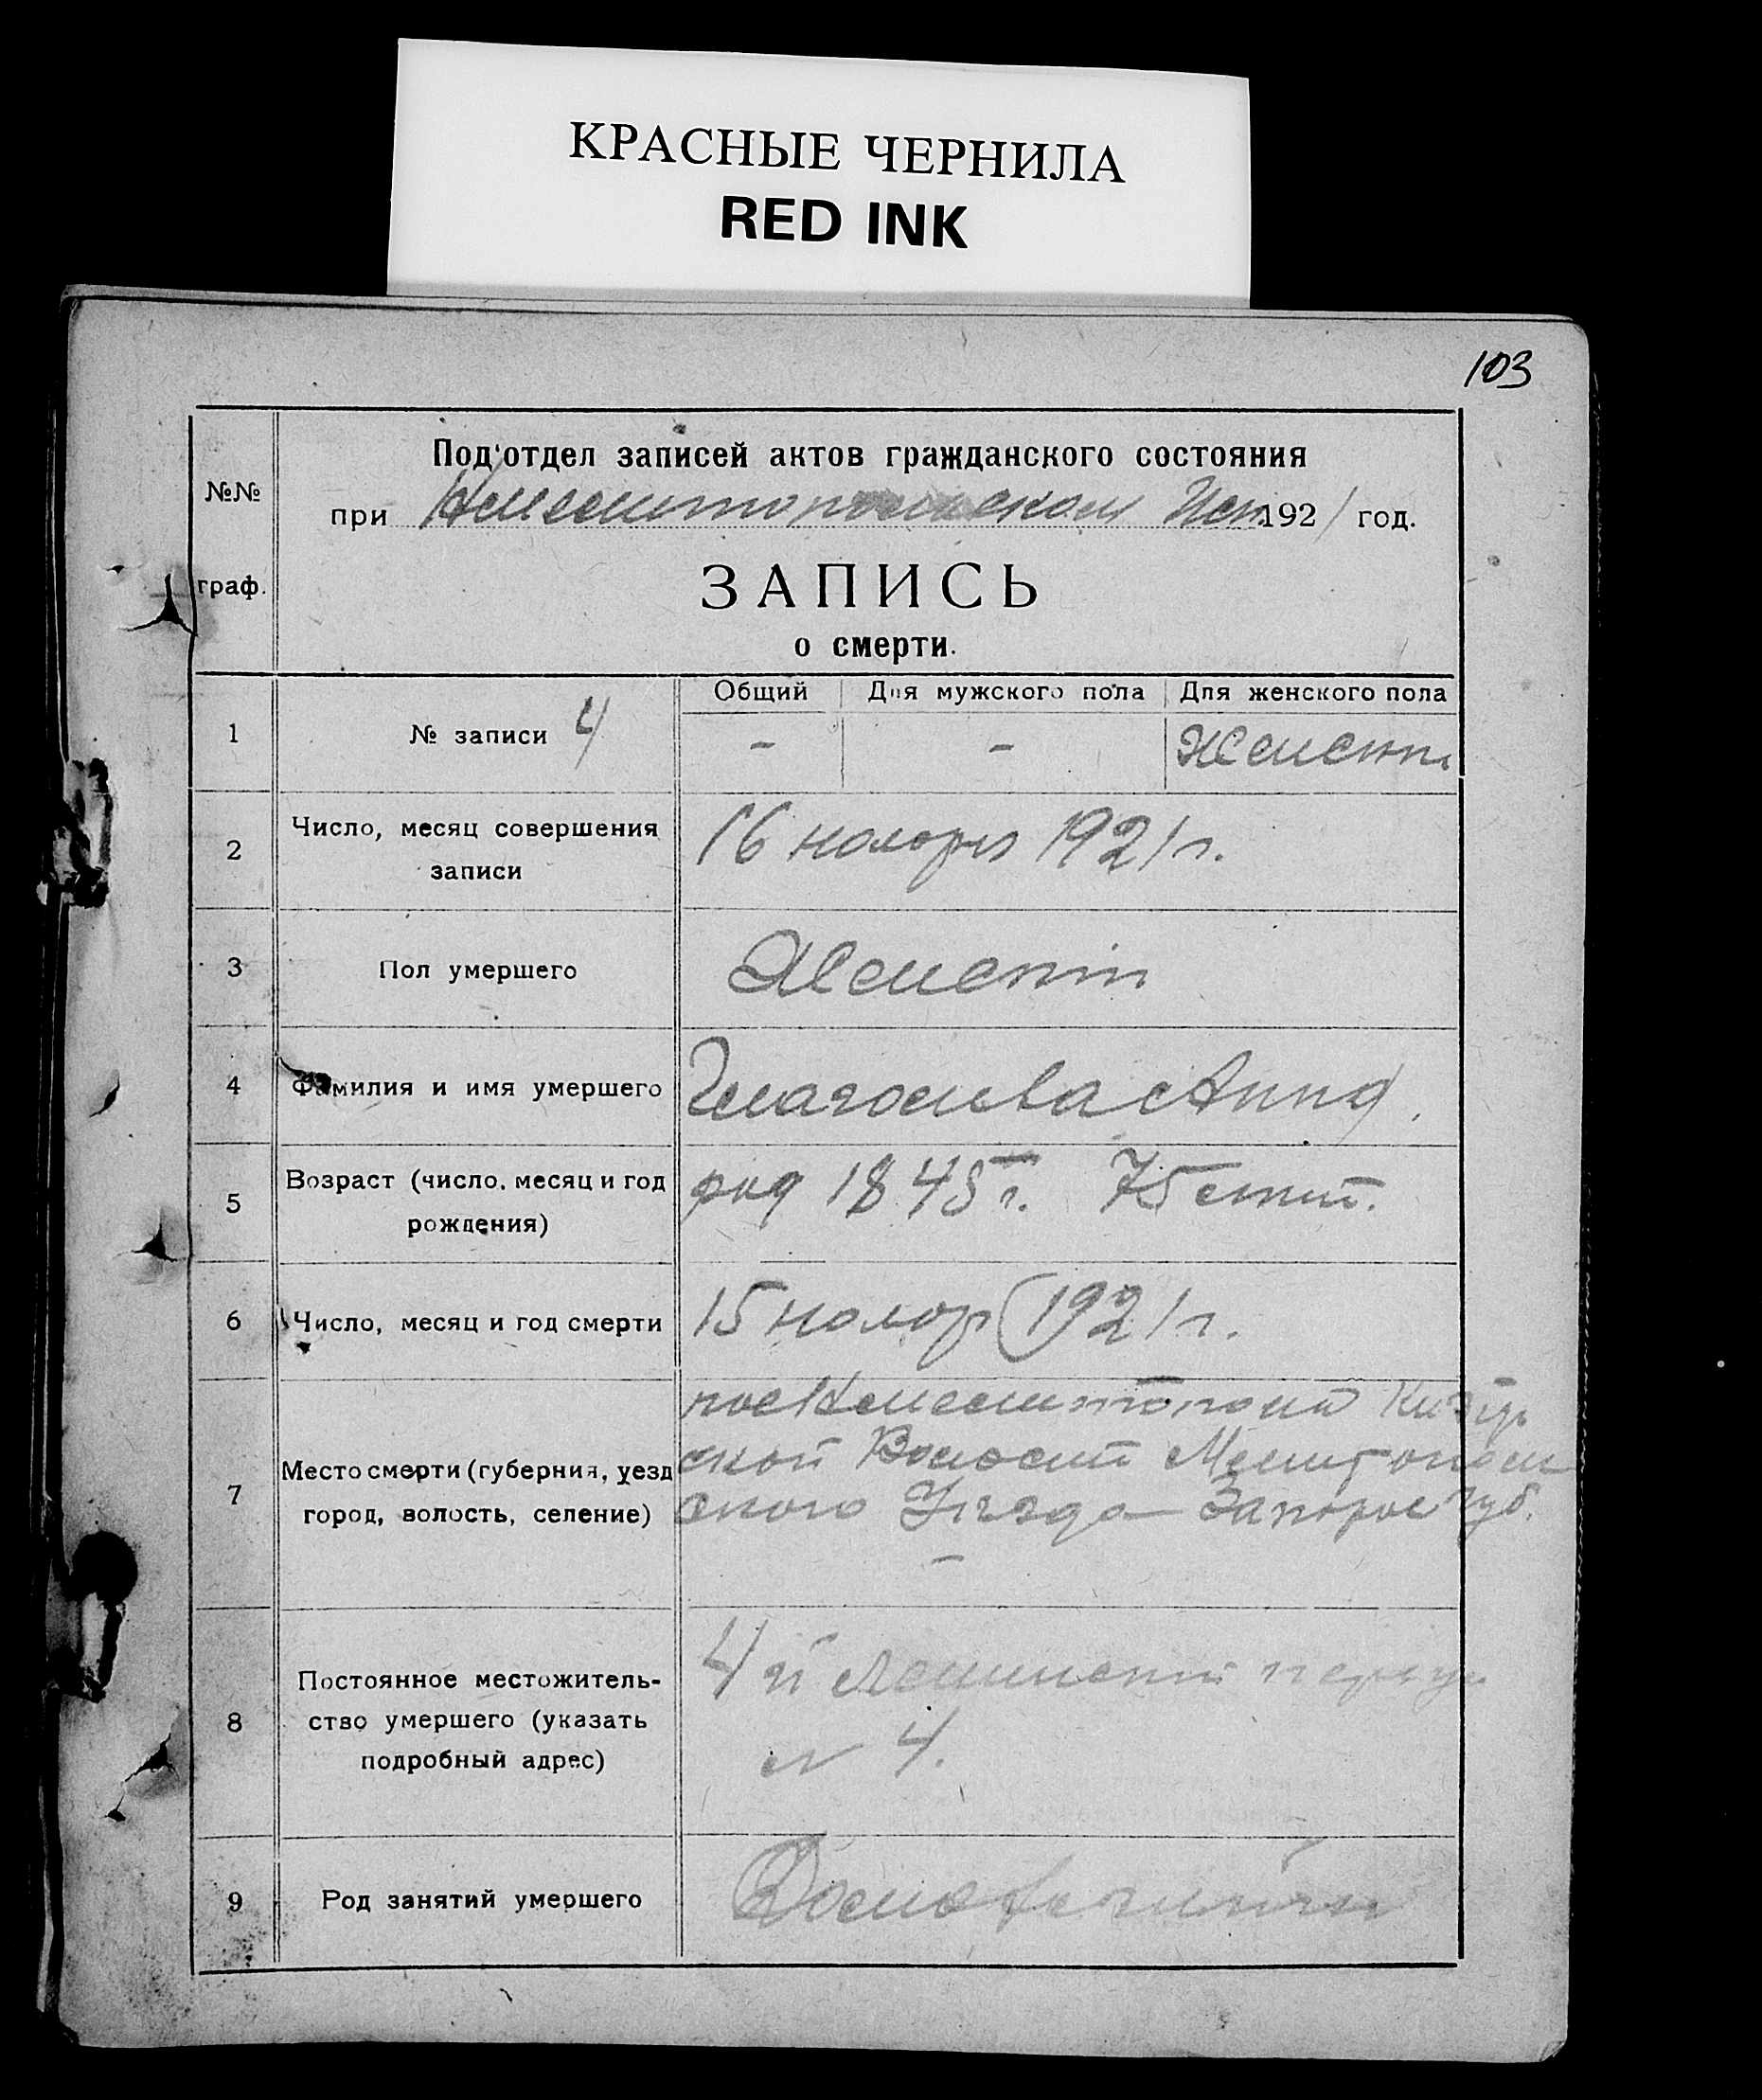 КРАСНЫЕ ЧЕРНИЛА
RED INK
103
№№ граф.
Под'отдел записей актов гражданского состояния
при 1921 год.
ЗАПИСЬ
о смерти.
Общий Для мужского пола Для женского пола
1 № записи 4 - - Женскл
2 Число, месяц совершения записи 16 ноября 1921 г.
3 Пол умершего Женский
4 Фамилия и имя умершего Анна
5 Возраст (число, месяц и год рождения) род 1845 г. 75 лет.
6 Число, месяц и год смерти 15 ноябр 1921 г.
7 Место смерти (губерния, уезд
город, волость, селение)
ской Волости Мелитополь
ского Уезда Запорож губ.
8 Постоянное местожитель-
ство умершего (указать
подробный адрес)
4 й
№ 4.
9 Род занятий умершего